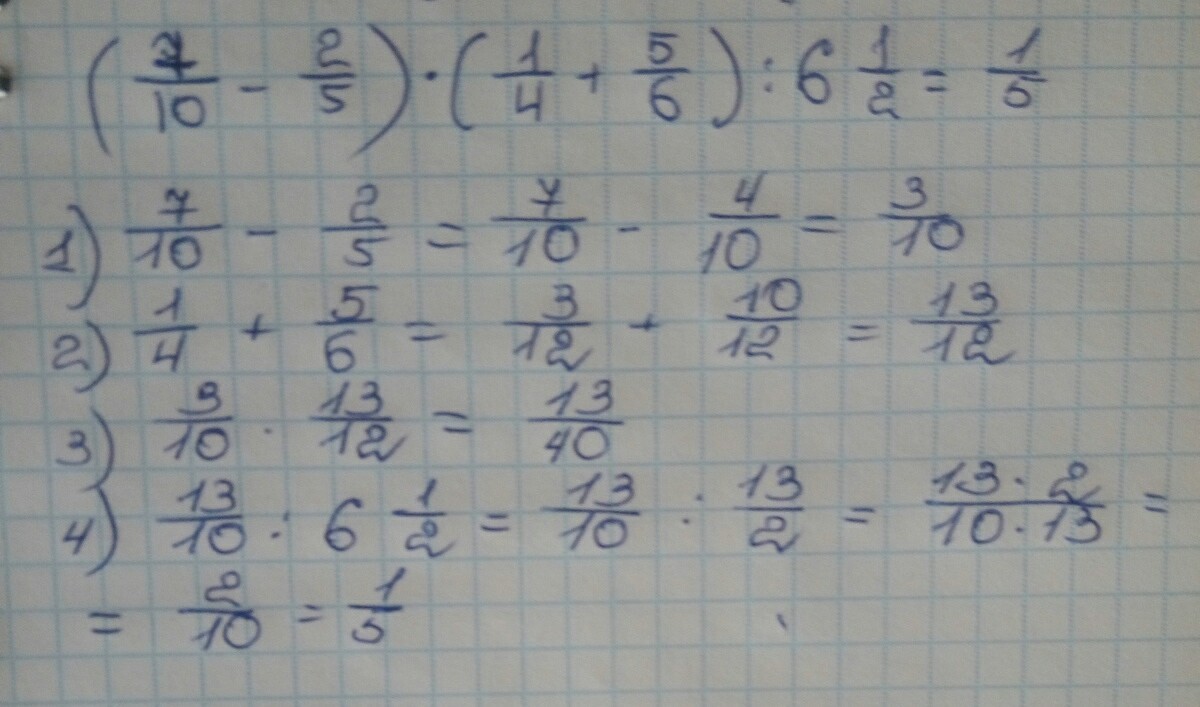 (7/10 - 2/5) · (1/4 + 5/6) : 6 1/2 = 1/5
1) 7/10 - 2/5 = 7/10 - 4/10 = 3/10
2) 1/4 + 5/6 = 3/12 + 10/12 = 13/12
3) 3/10 · 13/12 = 13/40
4) 13/10 : 6 1/2 = 13/10 : 13/2 = 13·2/10·13 =
= 2/10 = 1/5